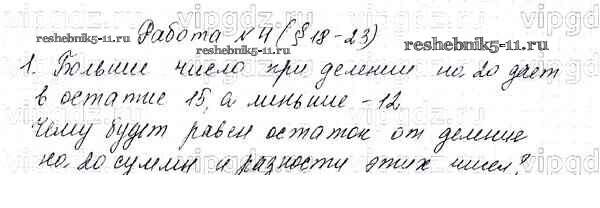 Работа №4 (§18-23)
reshebnik5-11.ru
reshebnik5-11.ru
1. Большие число при делении на 20 дает
в остатке 15, а меньшие - 12
Чему будет равен остаток от деление
на 20 суммы и разности этих чисел?
reshebnik5-11.ru